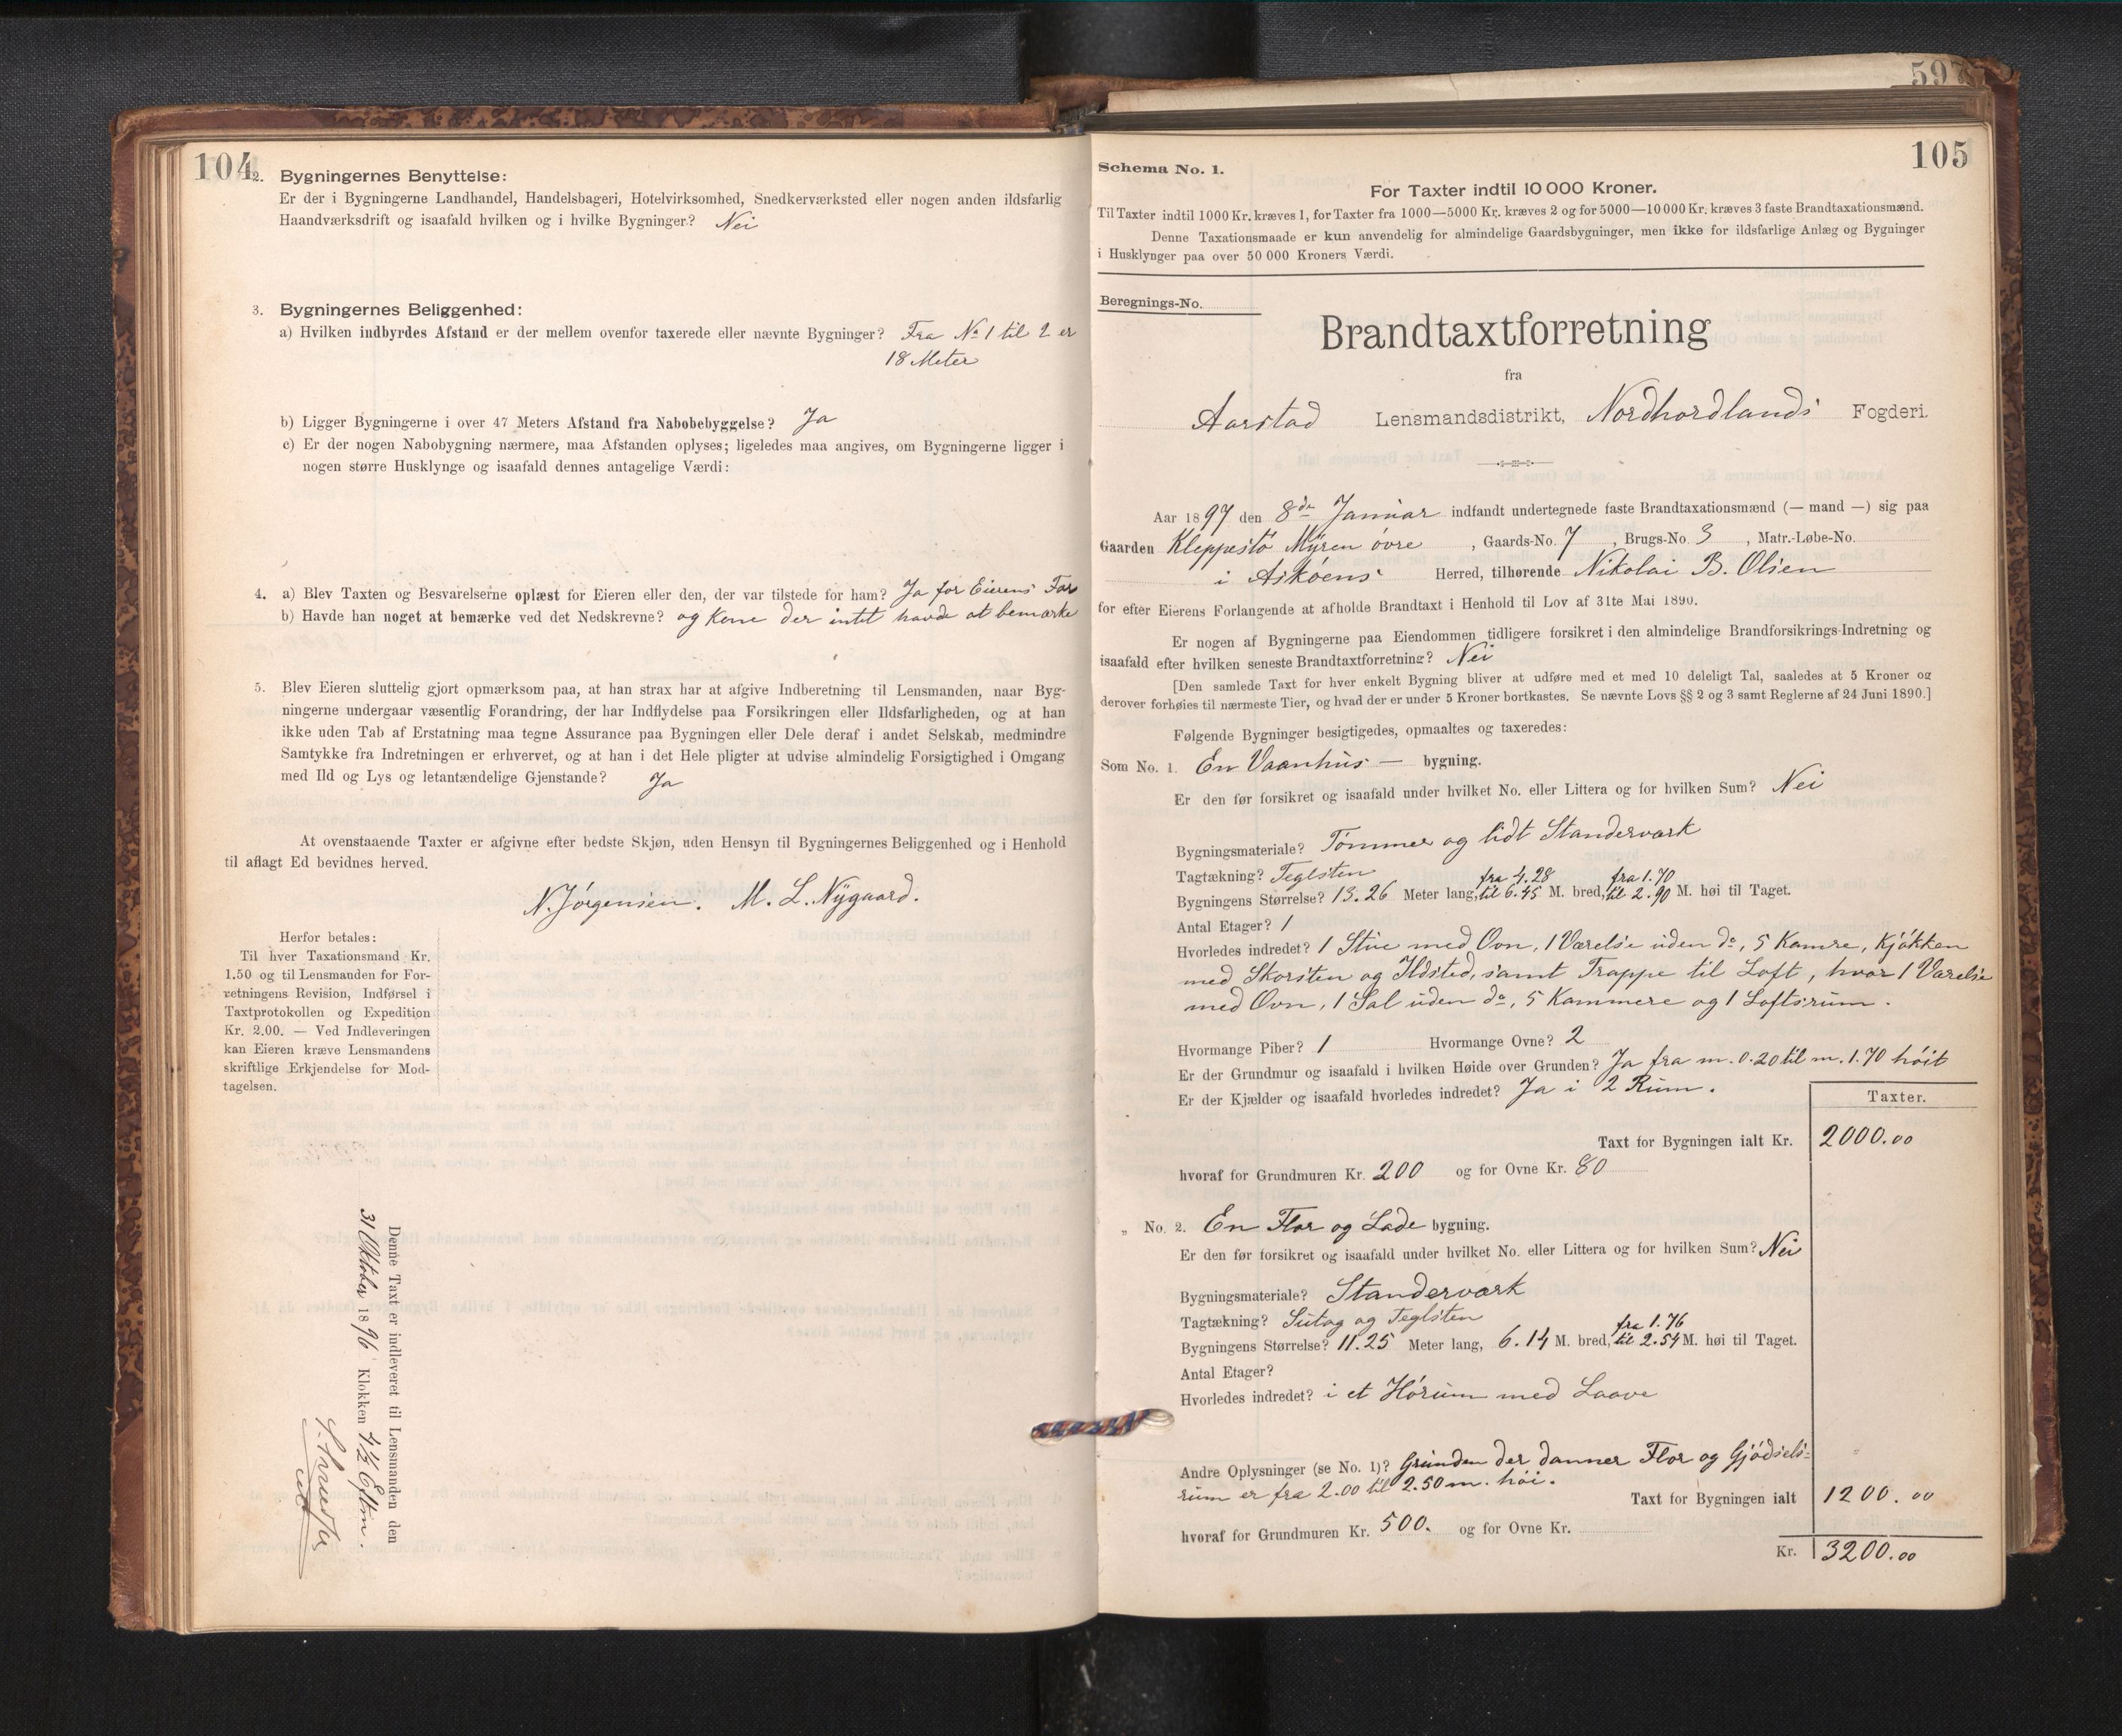 104
2. Bygningernes Benyttelse:
Er der i Bygningerne Landhandel, Handelsbageri, Hotelvirksomhed, Snedkerværksted eller nogen anden ildsfarlig
Haandværksdrift og isaafald hvilken og i hvilke Bygninger? Nei
3. Bygningernes Beliggenhed:
a) Hvilken indbyrdes Afstand er der mellem ovenfor taxerede eller nævnte Bygninger? Fra No 1 til 2 er
18 Meter
b) Ligger Bygningerne i over 47 Meters Afstand fra Nabobebyggelse? Ja
c) Er der nogen Nabobygning nærmere, maa Afstanden oplyses; ligeledes maa angives, om Bygningerne ligger i
nogen større Husklynge og isaafald dennes antagelige Værdi:
4. a) Blev Taxten og Besvarelserne oplæst for Eieren eller den, der var tilstede for ham? Ja for Eierens Far
b) Havde han noget at bemærke ved det Nedskrevne? og Kone der intet havde at bemærke
5. Blev Eieren sluttelig gjort opmærksom paa, at han strax har at afgive Indberetning til Lensmanden, naar Byg-
ningerne undergaar væsentlig Forandring, der har Indflydelse paa Forsikringen eller Ildsfarligheden, og at han
ikke uden Tab af Erstatning maa tegne Assurance paa Bygningen eller Dele deraf i andet Selskab, medmindre
Samtykke fra Indretningen er erhvervet, og at han i det Hele pligter at udvise almindelig Forsigtighed i Omgang
med Ild og Lys og letantændelige Gjenstande? Ja
At ovenstaaende Taxter er afgivne efter bedste Skjøn, uden Hensyn til Bygningernes Beliggenhed og i Henhold
til aflagt Ed bevidnes herved.
N. Jörgensen. M. L. Nygaard.
Herfor betales:
Til hver Taxationsmand Kr.
1.50 og til Lensmanden for For-
retningens Revision, Indførsel i
Taxtprotokollen og Expedition
Kr. 2.00. — Ved Indleveringen
kan Eieren kræve Lensmandens
skriftlige Erkjendelse for Mod-
tagelsen.
Denne Taxt er indleveret til Lensmanden den
31 Oktober 1896 Klokken 4½ Eftm.
597
105
Schema No. 1.
For Taxter indtil 10 000 Kroner.
Til Taxter indtil 1000 Kr. kræves 1, for Taxter fra 1000—5000 Kr. kræves 2 og for 5000—10 000 Kr. kræves 3 faste Brandtaxationsmænd.
Denne Taxationsmaade er kun anvendelig for almindelige Gaardsbygninger, men ikke for ildsfarlige Anlæg og Bygninger
i Husklynger paa over 50 000 Kroners Værdi.
Beregnings-No.
Brandtaxtforretning
fra
Aarstad Lensmandsdistrikt, Nordhordlands Fogderi.
Aar 1897 den 8de Januar indfandt undertegnede faste Brandtaxationsmænd (— mand —) sig paa
Gaarden Kleppestö Myren övre, Gaards-No. 7, Brugs-No. 3, Matr.-Løbe-No.
i Asköens Herred, tilhørende Nikolai B. Olsen
for efter Eierens Forlangende at afholde Brandtaxt i Henhold til Lov af 31te Mai 1890.
Er nogen af Bygningerne paa Eiendommen tidligere forsikret i den almindelige Brandforsikrings-Indretning og
isaafald efter hvilken seneste Brandtaxtforretning? Nei
[Den samlede Taxt for hver enkelt Bygning bliver at udføre med et med 10 deleligt Tal, saaledes at 5 Kroner og
derover forhøies til nærmeste Tier, og hvad der er under 5 Kroner bortkastes. Se nævnte Lovs §§ 2 og 3 samt Reglerne af 24 Juni 1890.]
Følgende Bygninger besigtigedes, opmaaltes og taxeredes:
Som No. 1. En Vaanhus — bygning.
Er den før forsikret og isaafald under hvilket No. eller Littera og for hvilken Sum? Nei
Bygningsmateriale? Tømmer og lidt Standerværk
Tagtækning? Teglsten
Bygningens Størrelse? 13.26 Meter lang, fra 4.28 til 6.45 M. bred, fra 1.70 til 2.90 M. høi til Taget.
Antal Etager? 1
Hvorledes indredet? 1 Stue med Ovn, 1 Værelse uden do, 5 Kamre, Kjökken
med Skorsten og Ildsted, samt Trappe til Loft, hvor 1 Værelse
med Ovn, 1 Sal uden do, 5 Kammere og 1 Loftsrum.
Hvormange Piber? 1 Hvormange Ovne? 2
Er der Grundmur og isaafald i hvilken Høide over Grunden? Ja fra m. 0.20 til m. 1.70 höit
Er der Kjælder og isaafald hvorledes indredet? Ja i 2 Rum.
Taxter.
Taxt for Bygningen ialt Kr. 2000.00
hvoraf for Grundmuren Kr. 200 og for Ovne Kr. 80
„ No. 2. En Flor og Lade bygning.
Er den før forsikret og isaafald under hvilket No. eller Littera og for hvilken Sum? Nei
Bygningsmateriale? Standerværk
Tagtækning? Sutag og Teglsten
Bygningens Størrelse? 11.25 Meter lang, 6.14 M. bred, fra 1.76 til 2.54 M. høi til Taget.
Antal Etager?
Hvorledes indredet? i et Hörum med Laave
Andre Oplysninger (se No. 1)? Grunden der danner Flor og Gjödsels-
rum er fra 2.00 til 2.50 m. höi.
Taxt for Bygningen ialt 1200.00
hvoraf for Grundmuren Kr. 500. og for Ovne Kr.
Kr. 3200.00